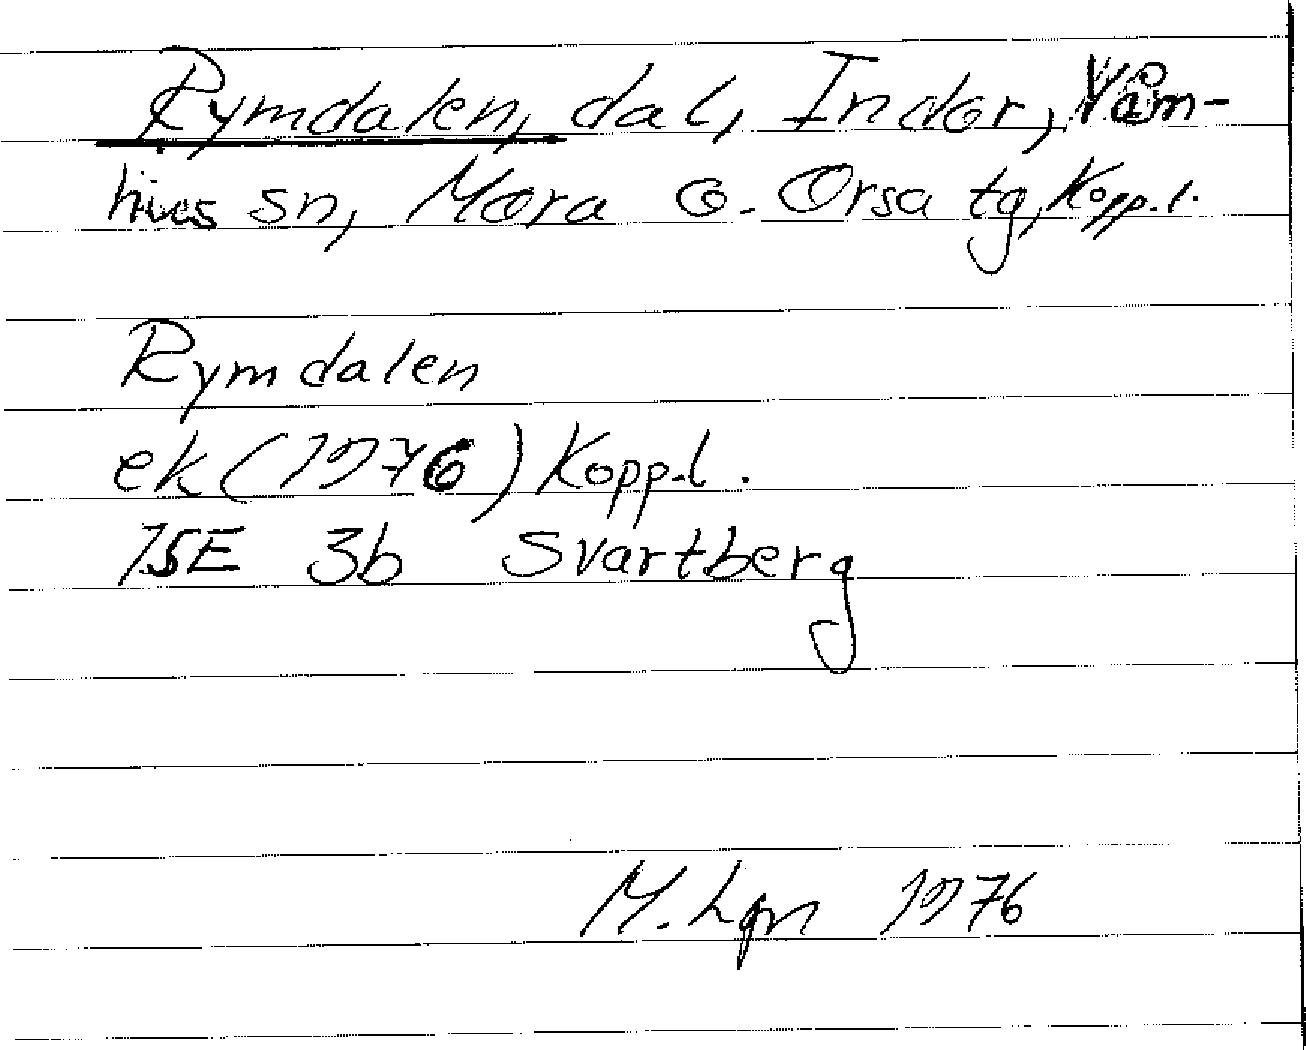 Rymdalen, dal, Indor, Våm-
hus sn, Mora o. Orsa tg, Kopp.l.
Rymdalen
ek (1976) Kopp.l.
15E 3b Svartberg
M. Lgn 1976